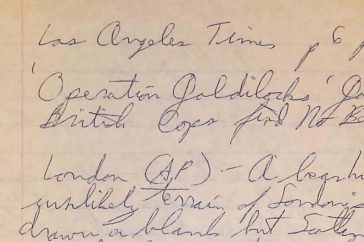 Los Angeles Times p 6
'Operation Goldilocks'
British Cops find No
London (AP) - A
unlikely terrain of
drawn a blank but